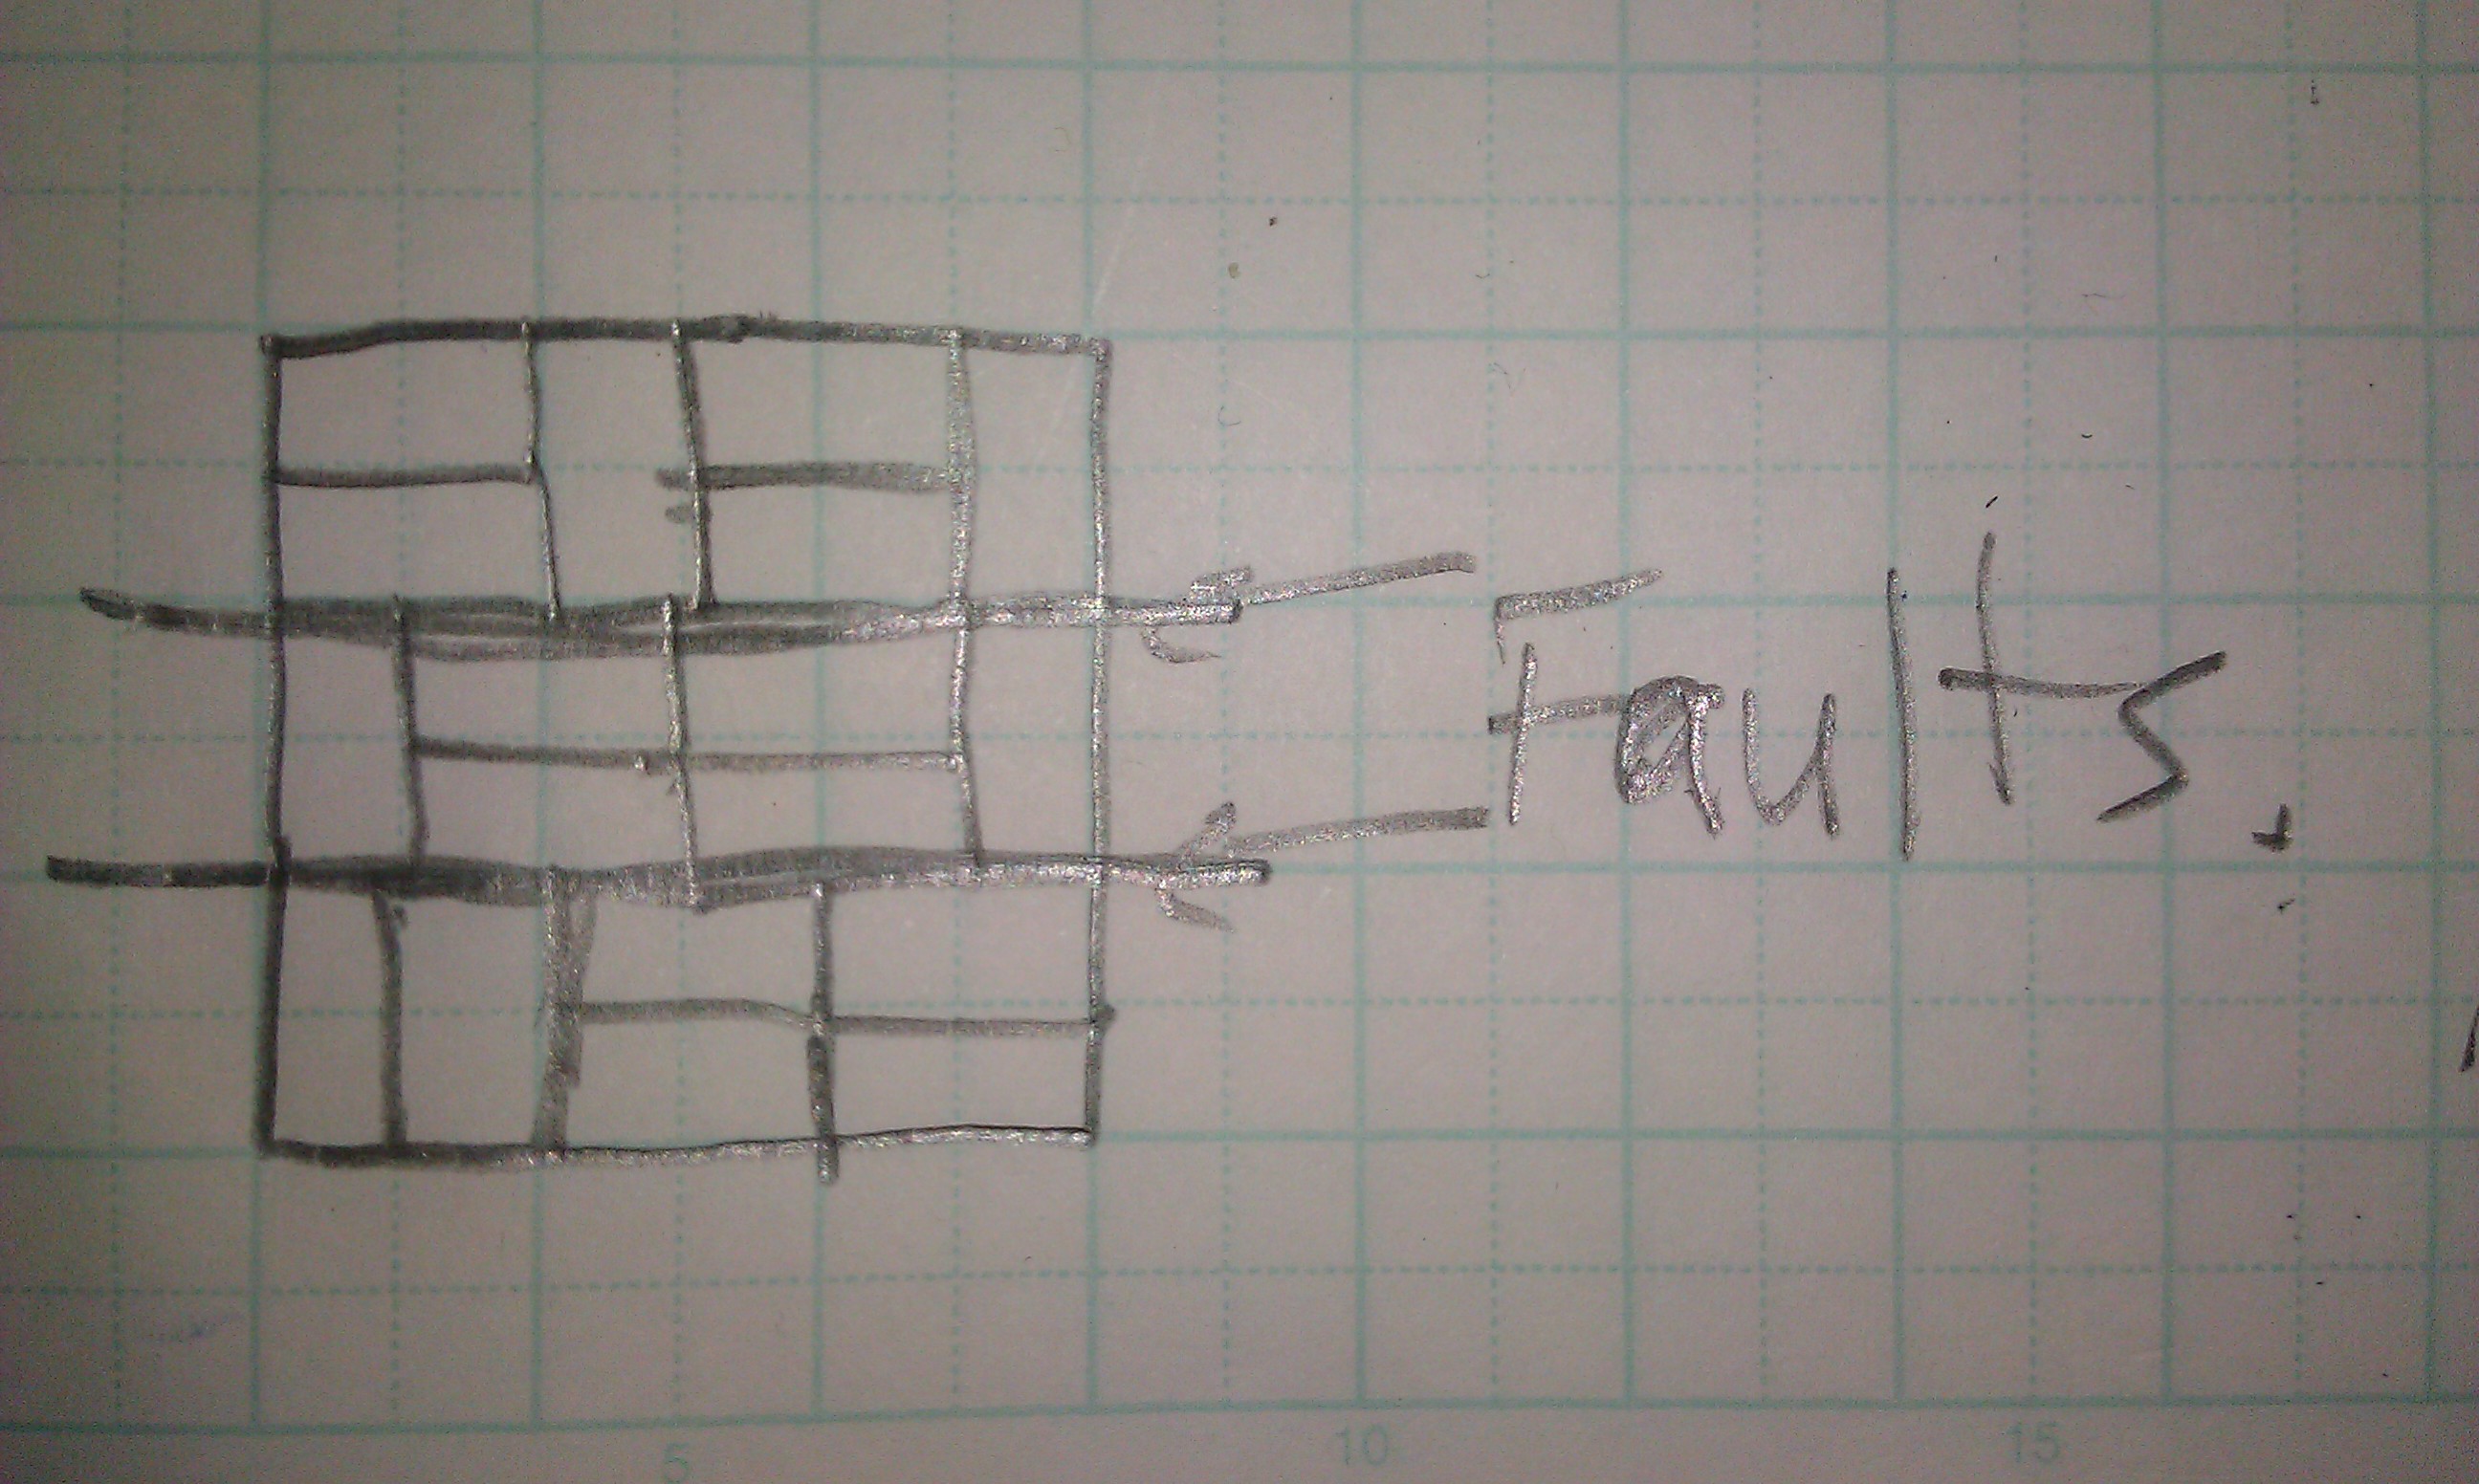 Faults.
5 10 15